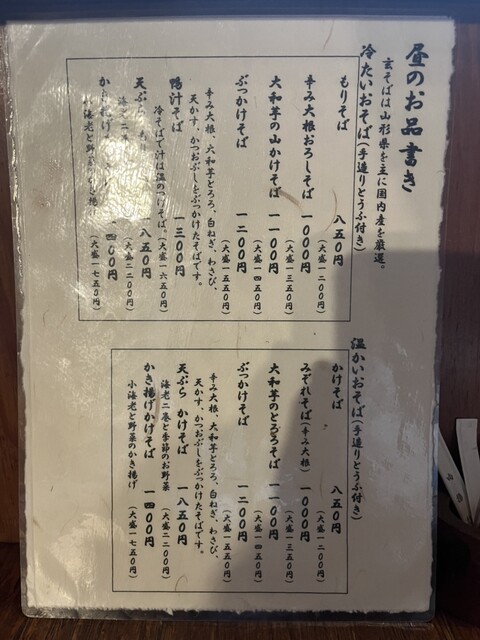 昼のお品書き
玄そばは山形県を主に国内産を厳選。
冷たいおそば(手造りとうふ付き)
もりそば 八五〇円
(大盛一二〇〇円)
辛み大根おろしそば 一〇〇〇円
(大盛一三五〇円)
大和芋の山かけそば 一一〇〇円
(大盛一四五〇円)
ぶっかけそば 一二〇〇円
(大盛一五五〇円)
辛み大根、大和芋とろろ、白ねぎ、わさび、
天かす、かつおぶしをぶっかけたそばです。
鴨汁そば 一三〇〇円
冷そばで汁は温のつけそば。(大盛一六五〇円)
天ぷら もり 一八五〇円
海老二 (大盛二二〇〇円)
かき揚げ 一四〇〇円
小海老と野菜のかき揚げ (大盛一七五〇円)
温かいおそば(手造りとうふ付き)
かけそば 八五〇円
(大盛一二〇〇円)
みぞれそば(辛み大根) 一〇〇〇円
(大盛一三五〇円)
大和芋のとろろそば 一一〇〇円
(大盛一四五〇円)
ぶっかけそば 一二〇〇円
(大盛一五五〇円)
辛み大根、大和芋とろろ、白ねぎ、わさび、
天かす、かつおぶしをぶっかけたそばです。
天ぷら かけそば 一八五〇円
海老二巻と季節のお野菜 (大盛二二〇〇円)
かき揚げかけそば 一四〇〇円
小海老と野菜のかき揚げ (大盛一七五〇円)